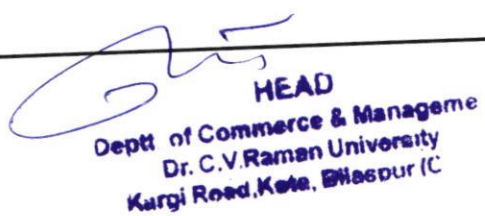 HEAD
Deptt of Commerce & Manageme
Dr. C.V.Raman University
Kargi Road,Kota, Bilaspur (C